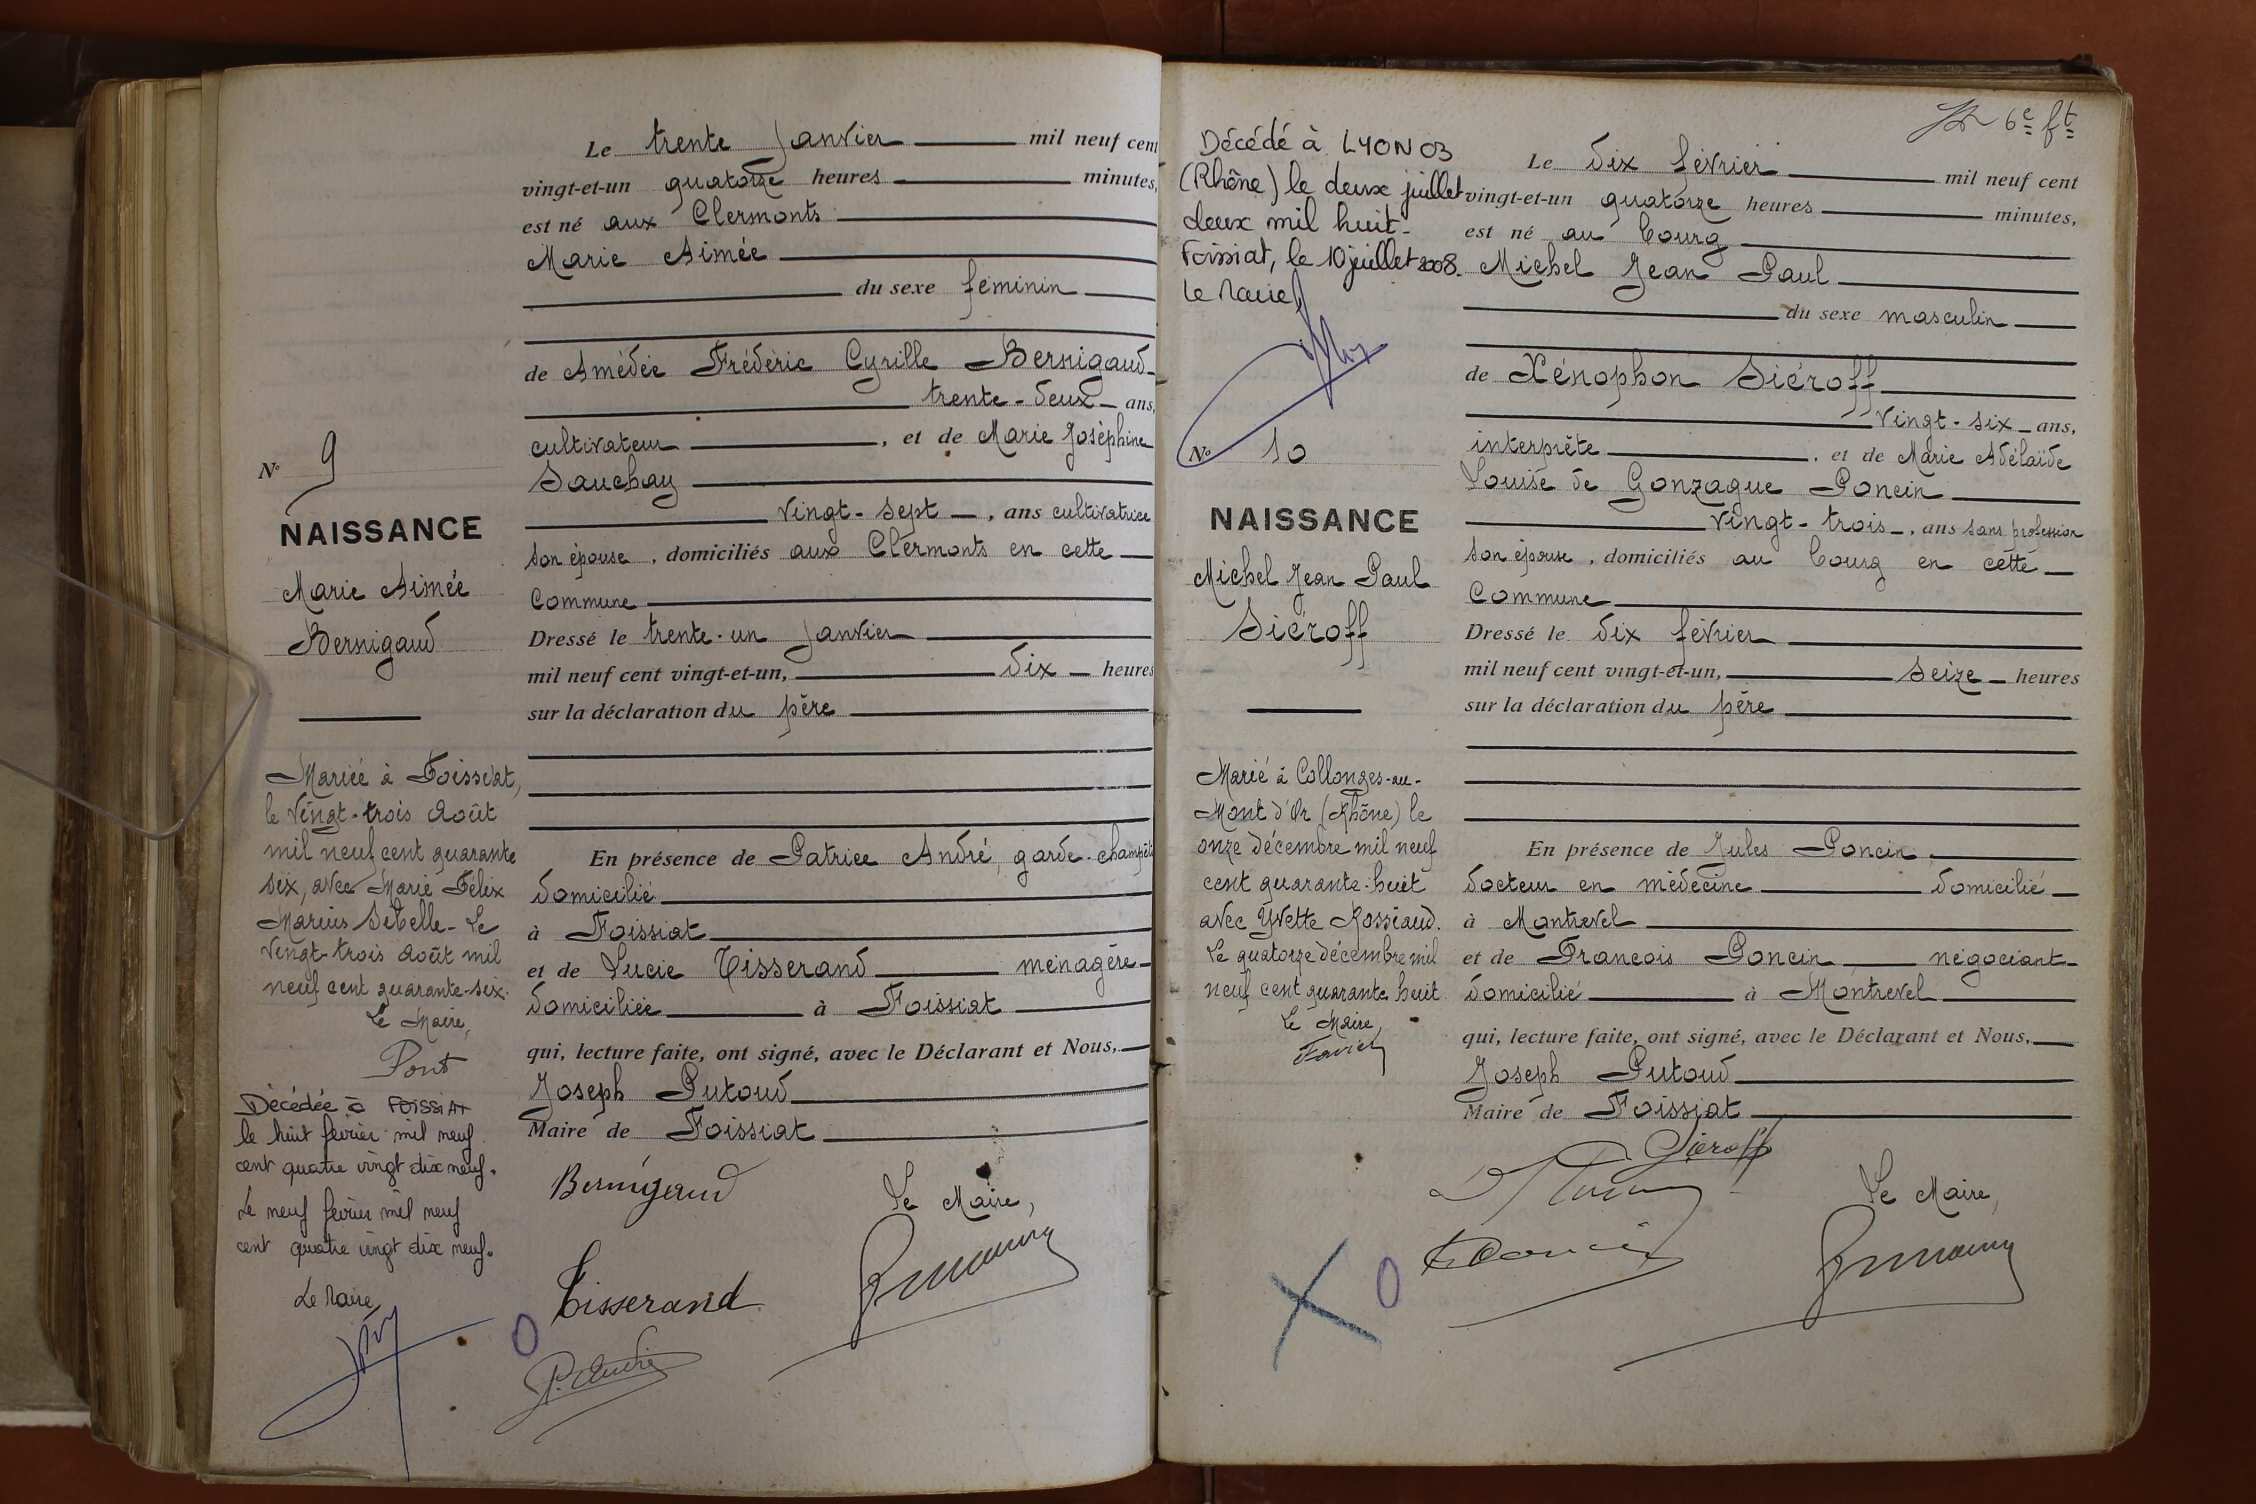 Le trente Janvier mil neuf cent
vingt-et-un quatorze heures minutes,
est né aux Clermonts
Marie Aimée
du sexe féminin
de Amédée Frédéric Cyrille Bernigaud
trente-deux ans,
cultivateur, et de Marie Joséphine
Sauchay
vingt-sept, ans cultivatrice
son épouse, domiciliés aux Clermonts en cette
commune
Dressé le trente-un Janvier
mil neuf cent vingt-et-un, dix heures
sur la déclaration du père
En présence de Patrice André, garde-champêtre
domicilié
à Foissiat
et de Lucie Tisserand ménagère
domiciliée à Foissiat
qui, lecture faite, ont signé, avec le Déclarant et Nous,
Joseph Putoud
Maire de Foissiat
Bernigaud
Le Maire,
Tisserand
P. André
N° 9
NAISSANCE
Marie Aimée
Bernigaud
Mariée à Foissiat,
le vingt-trois Août
mil neuf cent quarante
six, avec Marie Félix
Marius Sibelle - Le
vingt-trois Août mil
neuf cent quarante-six.
Le Maire,
Pont
Décédée à FOISSIAT
le huit février mil neuf
cent quatre vingt dix neuf.
Le neuf février mil neuf
cent quatre vingt dix neuf.
Le Maire,
6e ft
Décédé à LYON 03
(Rhône) le deux juillet
deux mil huit-
Foissiat, le 10 juillet 2008.
Le Maire
N° 10
NAISSANCE
Michel Jean Paul
Siéroff
Marié à Collonges-au-
Mont d'Or (Rhône) le
onze décembre mil neuf
cent quarante-huit
avec Yvette Rossiaud.
Le quatorze décembre mil
neuf cent quarante huit
Le Maire,
Le dix février mil neuf cent
vingt-et-un quatorze heures minutes,
est né au bourg
Michel Jean Paul
du sexe masculin
de Xénophon Siéroff
vingt-six ans,
interprète, et de Marie Adélaïde
Louise de Gonzague Poncin
vingt-trois, ans sans profession
son épouse, domiciliés au bourg en cette
commune
Dressé le dix février
mil neuf cent vingt-et-un, seize heures
sur la déclaration du père
En présence de Jules Poncin,
docteur en médecine domicilié
à Montrevel
et de François Poncin négociant
domicilié à Montrevel
qui, lecture faite, ont signé, avec le Déclarant et Nous,
Joseph Putoud
Maire de Foissiat
Siéroff
Le Maire,